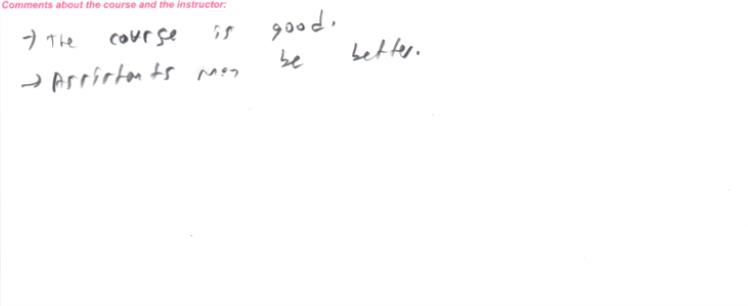 Comments about the course and the instructor:
→ The course is good.
→ Assistants may be better.